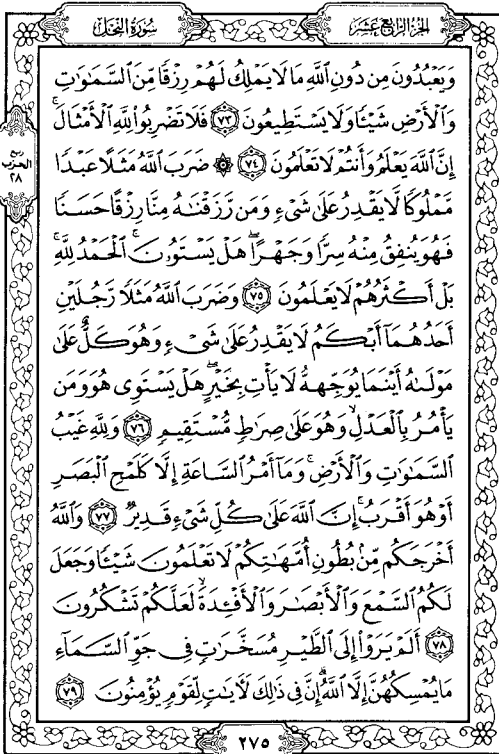 الجزء الرابع عشر
سورة النحل
وَيَعْبُدُونَ مِن دُونِ ٱللَّهِ مَا لَا يَمْلِكُ لَهُمْ رِزْقًا مِّنَ ٱلسَّمَٰوَٰتِ
وَٱلْأَرْضِ شَيْـًٔا وَلَا يَسْتَطِيعُونَ ٧٣ فَلَا تَضْرِبُوا۟ لِلَّهِ ٱلْأَمْثَالَ ۚ
إِنَّ ٱللَّهَ يَعْلَمُ وَأَنتُمْ لَا تَعْلَمُونَ ٧٤ ۞ ضَرَبَ ٱللَّهُ مَثَلًا عَبْدًا
مَّمْلُوكًا لَّا يَقْدِرُ عَلَىٰ شَىْءٍ وَمَن رَّزَقْنَٰهُ مِنَّا رِزْقًا حَسَنًا
فَهُوَ يُنفِقُ مِنْهُ سِرًّا وَجَهْرًا ۖ هَلْ يَسْتَوُۥنَ ۚ ٱلْحَمْدُ لِلَّهِ ۚ
بَلْ أَكْثَرُهُمْ لَا يَعْلَمُونَ ٧٥ وَضَرَبَ ٱللَّهُ مَثَلًا رَّجُلَيْنِ
أَحَدُهُمَآ أَبْكَمُ لَا يَقْدِرُ عَلَىٰ شَىْءٍ وَهُوَ كَلٌّ عَلَىٰ
مَوْلَىٰهُ أَيْنَمَا يُوَجِّههُّ لَا يَأْتِ بِخَيْرٍ ۖ هَلْ يَسْتَوِى هُوَ وَمَن
يَأْمُرُ بِٱلْعَدْلِ ۙ وَهُوَ عَلَىٰ صِرَٰطٍ مُّسْتَقِيمٍ ٧٦ وَلِلَّهِ غَيْبُ
ٱلسَّمَٰوَٰتِ وَٱلْأَرْضِ ۚ وَمَآ أَمْرُ ٱلسَّاعَةِ إِلَّا كَلَمْحِ ٱلْبَصَرِ
أَوْ هُوَ أَقْرَبُ ۚ إِنَّ ٱللَّهَ عَلَىٰ كُلِّ شَىْءٍ قَدِيرٌ ٧٧ وَٱللَّهُ
أَخْرَجَكُم مِّنۢ بُطُونِ أُمَّهَٰتِكُمْ لَا تَعْلَمُونَ شَيْـًٔا وَجَعَلَ
لَكُمُ ٱلسَّمْعَ وَٱلْأَبْصَٰرَ وَٱلْأَفْـِٔدَةَ ۙ لَعَلَّكُمْ تَشْكُرُونَ
٧٨ أَلَمْ يَرَوْا۟ إِلَى ٱلطَّيْرِ مُسَخَّرَٰتٍ فِى جَوِّ ٱلسَّمَآءِ
مَا يُمْسِكُهُنَّ إِلَّا ٱللَّهُ ۗ إِنَّ فِى ذَٰلِكَ لَـَٔايَٰتٍ لِّقَوْمٍ يُؤْمِنُونَ ٧٩
ربع
الحزب
٢٨
٢٧٥